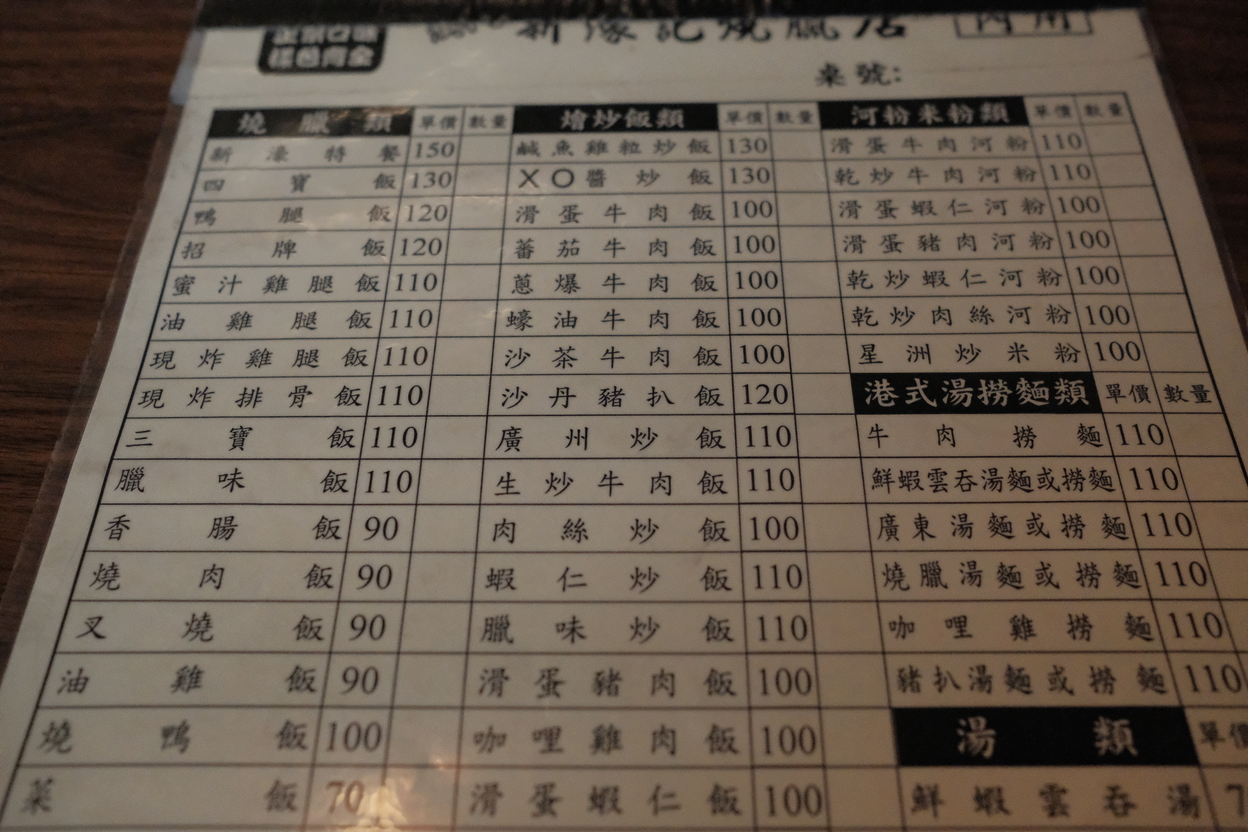 正宗口味
樣色齊全
新濠記燒臘店
內用
桌號:
燒臘類 單價 數量
新濠特餐 150
四寶飯 130
鴨腿飯 120
招牌飯 120
蜜汁雞腿飯 110
油雞腿飯 110
現炸雞腿飯 110
現炸排骨飯 110
三寶飯 110
臘味飯 110
香腸飯 90
燒肉飯 90
叉燒飯 90
油雞飯 90
燒鴨飯 100
菜飯 70
燴炒飯類 單價 數量
鹹魚雞粒炒飯 130
XO醬炒飯 130
滑蛋牛肉飯 100
蕃茄牛肉飯 100
蔥爆牛肉飯 100
蠔油牛肉飯 100
沙茶牛肉飯 100
沙丹豬扒飯 120
廣州炒飯 110
生炒牛肉飯 110
肉絲炒飯 100
蝦仁炒飯 110
臘味炒飯 110
滑蛋豬肉飯 100
咖哩雞肉飯 100
滑蛋蝦仁飯 100
河粉米粉類 單價 數量
滑蛋牛肉河粉 110
乾炒牛肉河粉 110
滑蛋蝦仁河粉 100
滑蛋豬肉河粉 100
乾炒蝦仁河粉 100
乾炒肉絲河粉 100
星洲炒米粉 100
港式湯撈麵類 單價 數量
牛肉撈麵 110
鮮蝦雲吞湯麵或撈麵 110
廣東湯麵或撈麵 110
燒臘湯麵或撈麵 110
咖哩雞撈麵 110
豬扒湯麵或撈麵 110
湯類 單價
鮮蝦雲吞湯 7